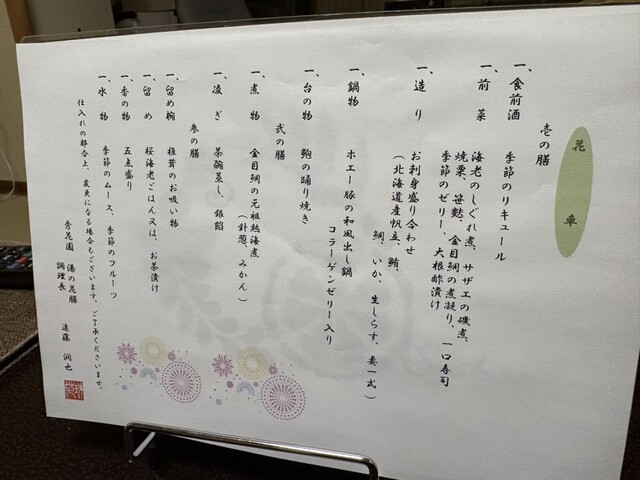 花車
壱の膳
一、食前酒 季節のリキュール
一、前菜 海老のしぐれ煮、サザエの磯煮、
焼栗、笹麩、金目鯛の煮凝り、一口寿司
季節のゼリー、大根酢漬け
一、造り お刺身盛り合わせ
（北海道産帆立、鮪、
鯛、いか、生しらす、妻一式）
一、鍋物 ホエー豚の和風出し鍋
コラーゲンゼリー入り
一、台の物 鮑の踊り焼き
弐の膳
一、煮物 金目鯛の元祖熱海煮
（針葱、みかん）
一、凌ぎ 茶碗蒸し、銀餡
参の膳
一、留め椀 椎茸のお吸い物
一、留め 桜海老ごはん又は、お茶漬け
一、香の物 五点盛り
一、水物 季節のムース、季節のフルーツ
仕入れの都合上、変更になる場合もございます。ご了承くださいませ。
秀花園 湯の花膳
調理長 遠藤 潤也